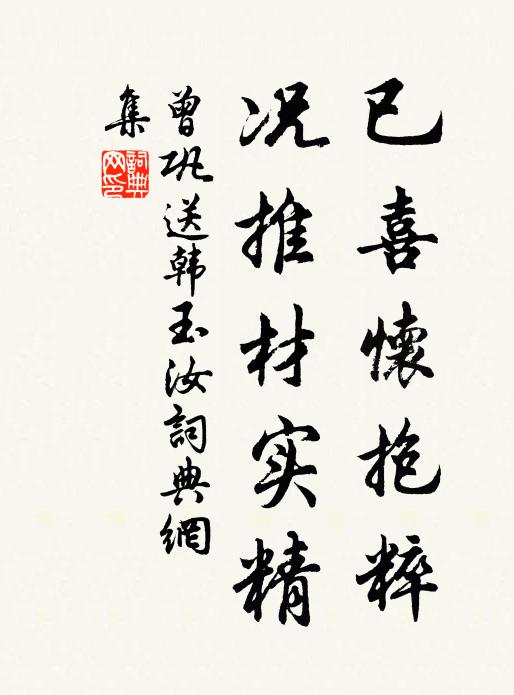 已喜懷抱粹
况推材实精
曾巩送韩玉汝詞典網
集
詞典
网印